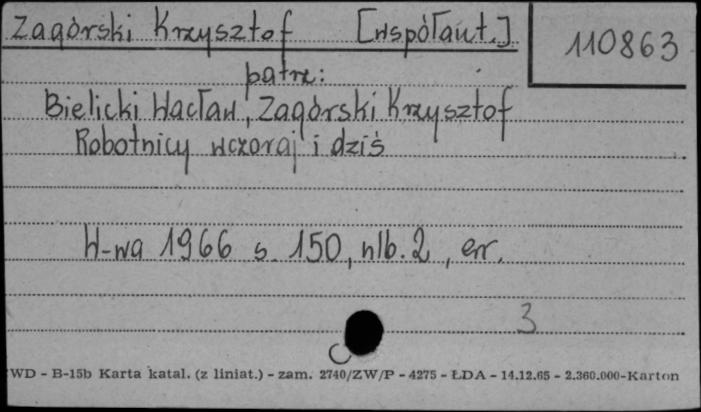 Zagórski Krzysztof [współaut.] 110863
patrz:
Bielicki Wacław, Zagórski Krzysztof
Robotnicy wczoraj i dziś
W-wa 1966 s. 150, nlb. 2, err.
3
WD - B-15b Karta katal. (z liniat.) - zam. 2740/ZW/P - 4275 - ŁDA - 14.12.65 - 2.360.000-Karton